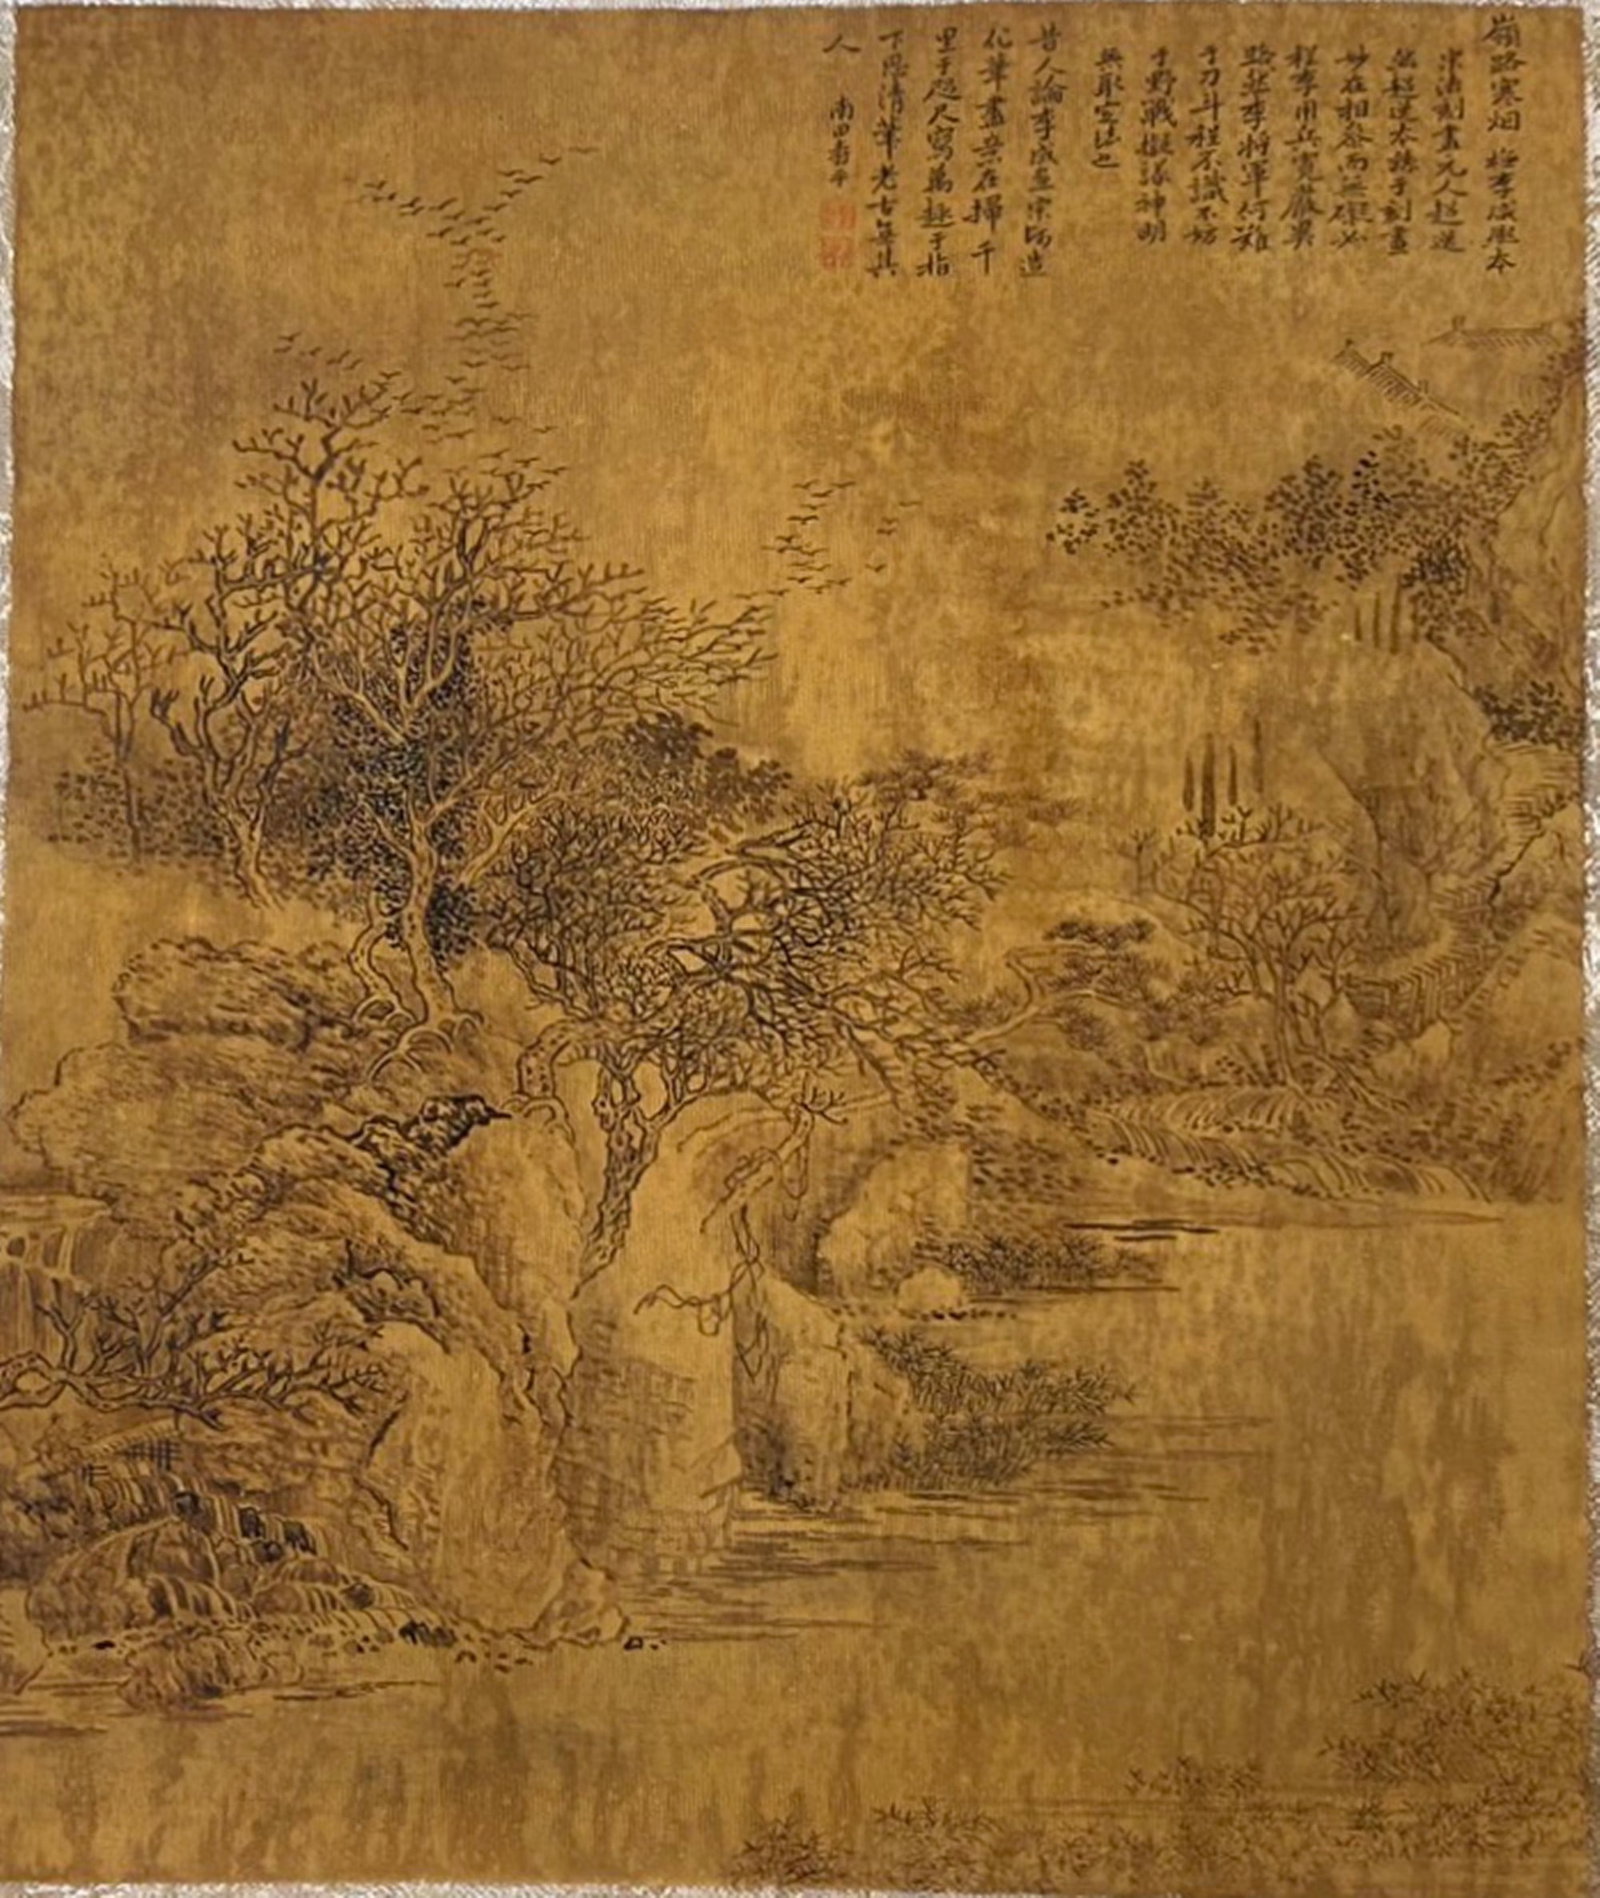 嶺路寒烟 橅李成熙本
宋法刻畫元人超逸
然超逸本於刻畫
妙在相參而無礙必
程李用兵寬嚴異
路然李將軍何難
于刁斗程不識不妨
于野戰擬議神明
無取定法也
昔人論李成直宗師造
化筆盡意在掃千
里于咫尺寫萬趣于指
下思清筆老古無其
人
南田壽平